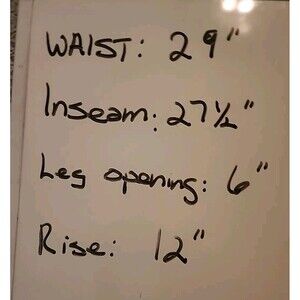 WAIST: 29"
Inseam: 27½"
Leg opening: 6"
Rise: 12"